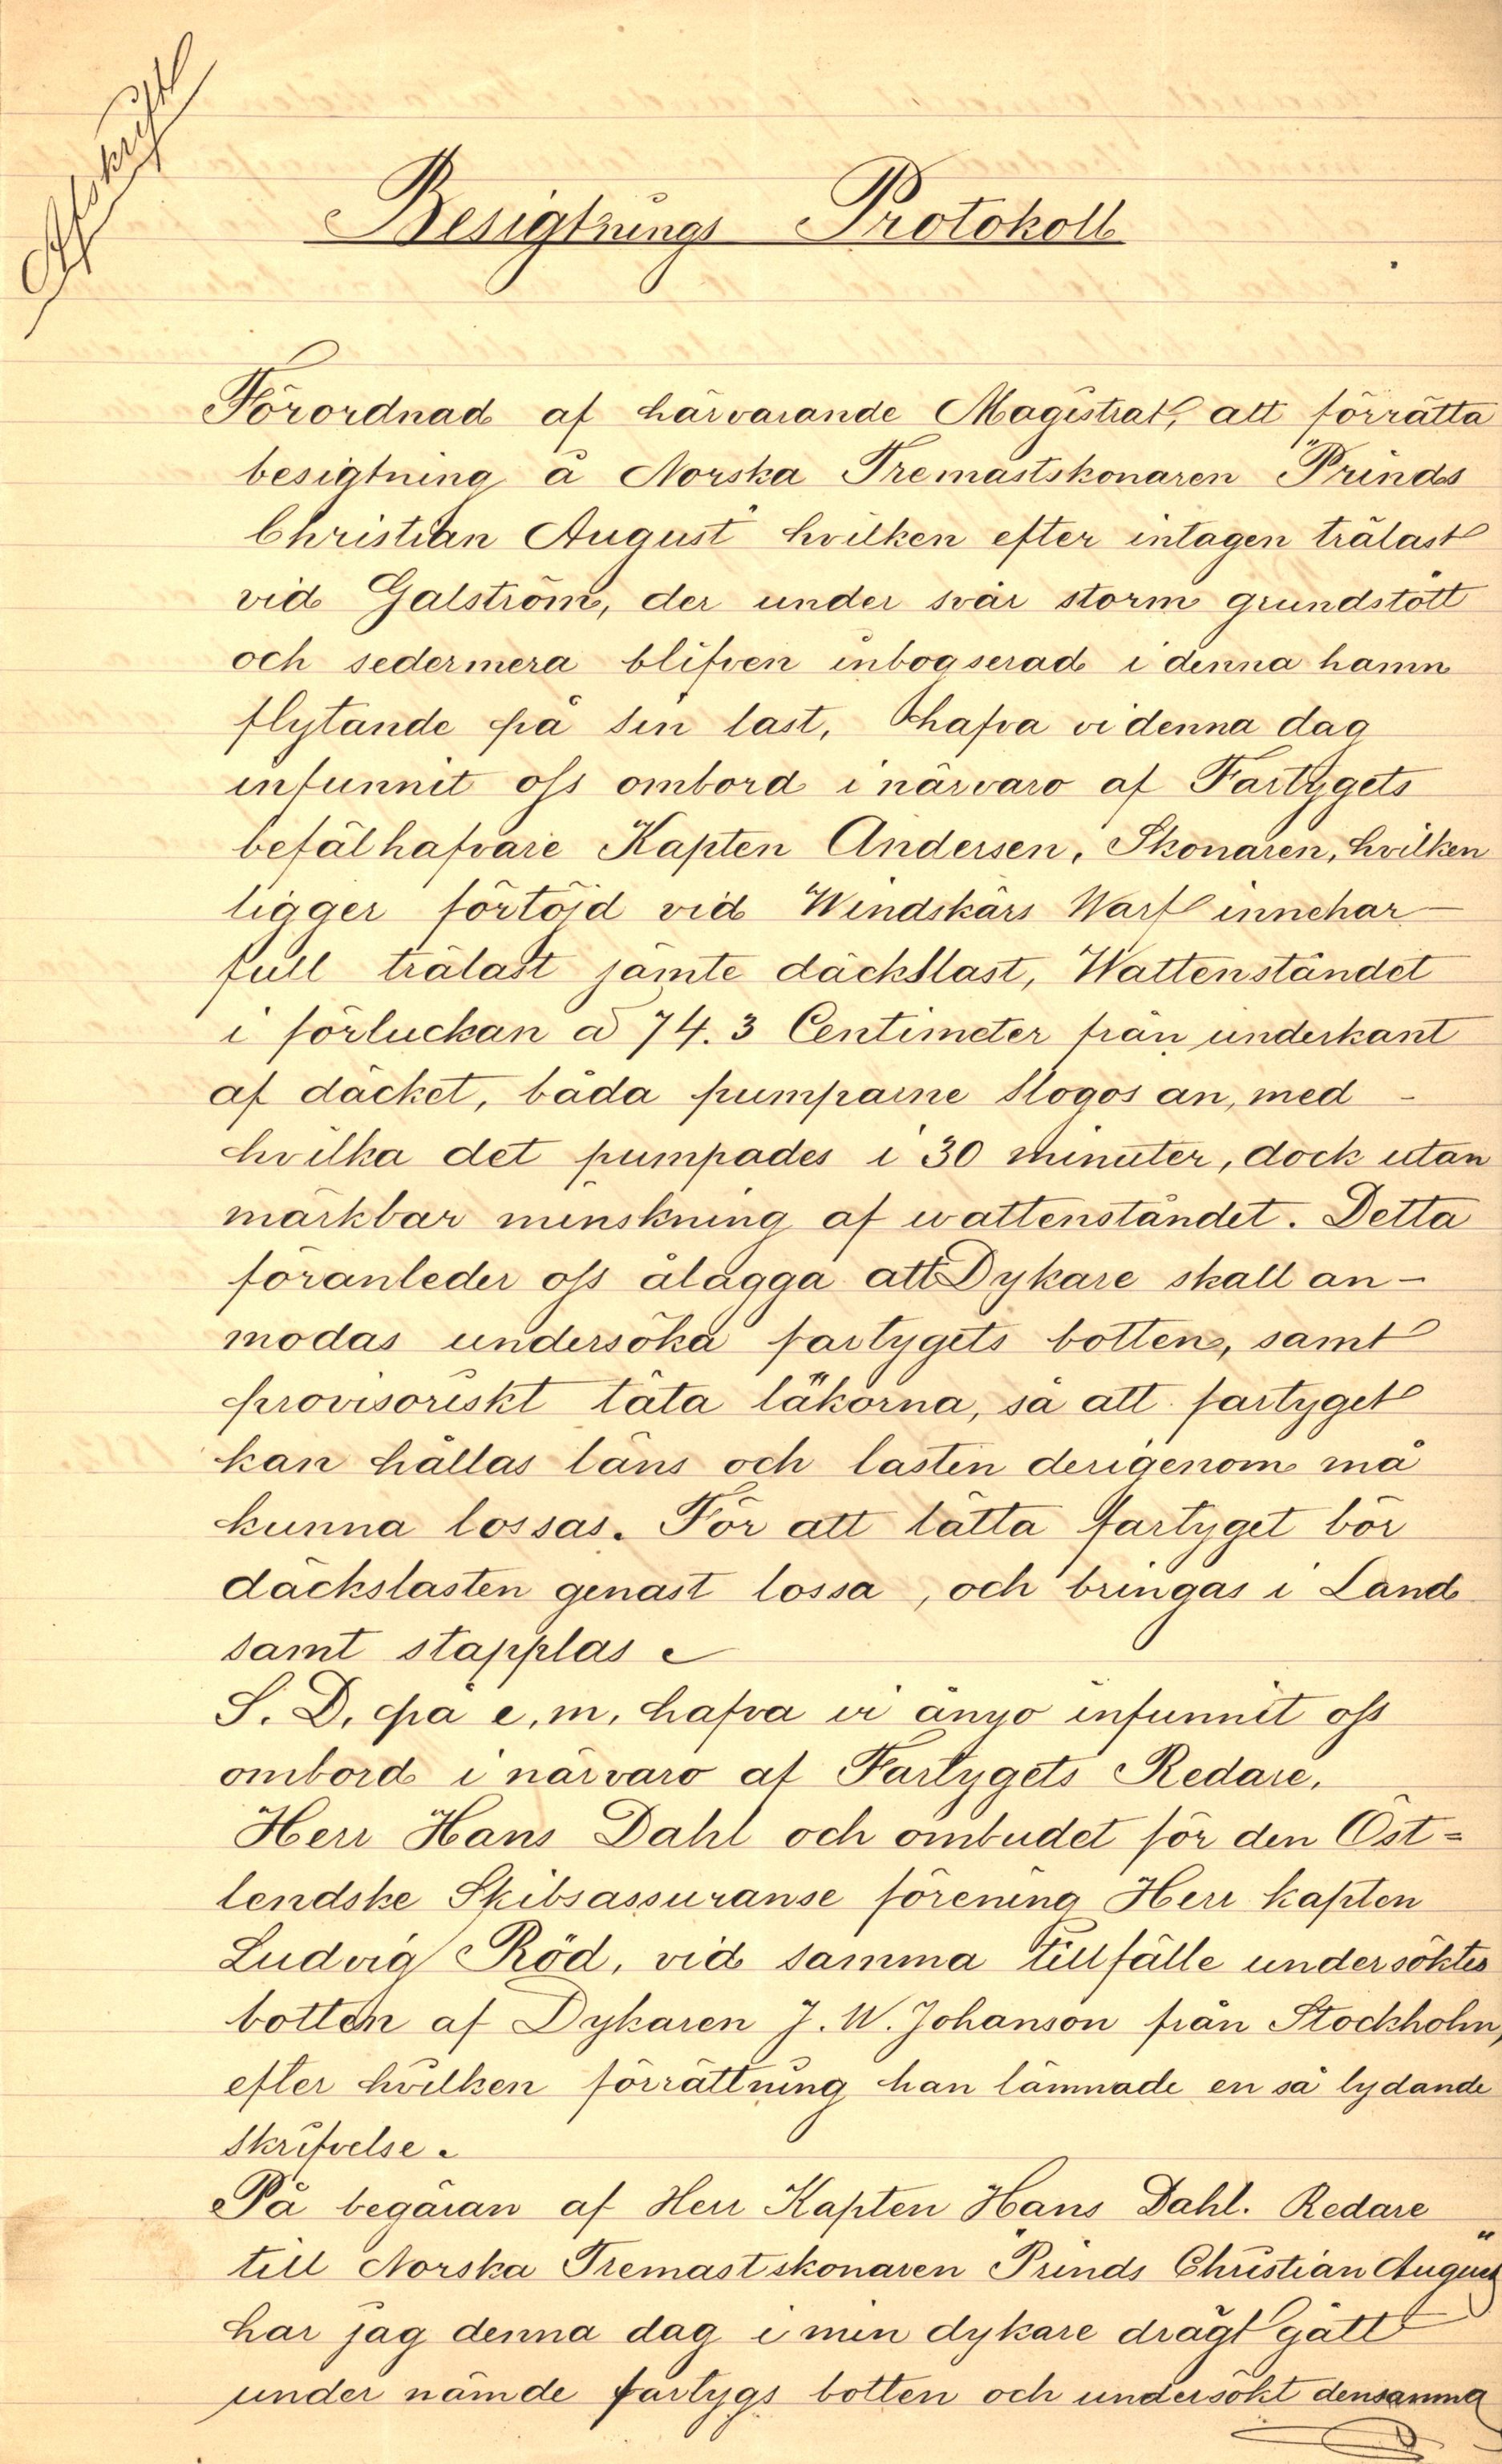 Afskrift
Besigtnings Protokoll
Förordnad af härvarande Magistrat, att förrätta
besigtning å Norska Tremastskonaren "Prinds
Christian August" hvilken efter intagen trälast
vid Galström, der under svår storm grundstött
och sedermera blifven inbogserad i denna hamn
flytande på sin last, hafva vi denna dag
infunnit oss ombord i närvaro af Fartygets
befälhafvare Kapten Andersen, Skonaren, hvilken
ligger förtöjd vid Windskärs Warf innehar
full trälast jämte däckslast, Wattenståndet
i förluckan a 74.3 Centimeter från underkant
af däcket, båda pumparne slogos an, med -
hvilka det pumpades i 30 minuter, dock utan
märkbar minskning af wattenståndet. Detta
föranleder oss ålägga att Dykare skall an-
modas undersöka fartygets botten, samt
provisoriskt täta läkorna, så att fartyget
kan hållas läns och lasten derigenom må
kunna lossas. För att lätta fartyget bör
däckslasten genast lossa, och bringas i Land
samt stapplas
S. D. på e, m, hafva vi ånyo infunnit oss
ombord i närvaro af Fartygets Redare,
Herr Hans Dahl och ombudet för den Öst=
lendske Skibsassuranse förening Herr kapten
Ludvig Röd, vid samma tillfälle undersöktes
botten af Dykaren J. W. Johanson från Stockholm,
efter hvilken förrättning han lämnade en så lydande
skrifvelse.
På begäran af Herr Kapten Hans Dahl. Redare
till Norska Tremastskonaren "Prinds Christian August"
har jag denna dag i min dykare drägt gått
under nämde fartygs botten och undersökt densamma